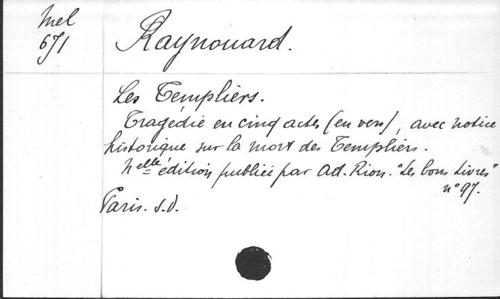 Mel
671
Raynouard.
Les Templiers.
Tragédie en cinq actes (en vers), avec notice
historique sur la mort des Templiers.
Nelle édition publiée par Ad. Rion. "Les bons Livres"
n° 97.
Paris. s.d.